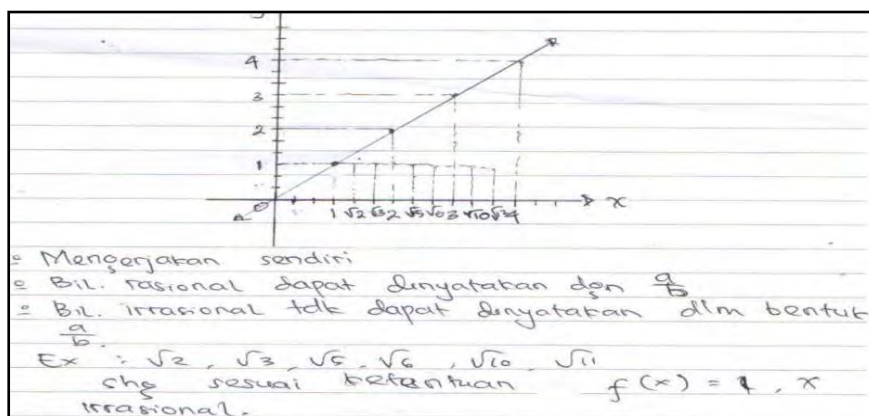 4
3
2
1
0
1 √2 √3 2 √5 √6 3 √10 4 x
- Mengerjakan sendiri
- Bil. rasional dapat dinyatakan dgn a/b
- Bil. irrasional tdk dapat dinyatakan dlm bentuk
a/b.
Ex : √2, √3, √5, √6, √10, √11
shg sesuai ketentuan f(x) = 1, x
irrasional.